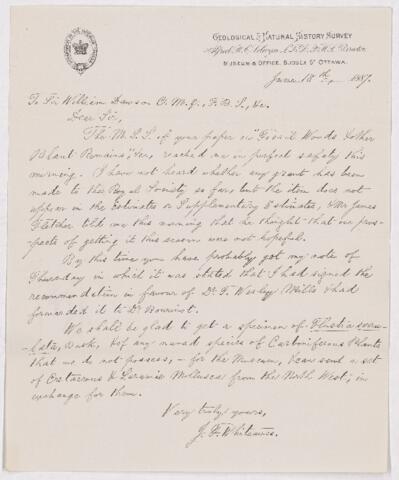 GEOLOGICAL & NATURAL HISTORY SURVEY
Alfred R. C. Selwyn, L.L.D., F.R.S., Director.
MUSEUM & OFFICE, SUSSEX ST OTTAWA.
June 18th, 1887.
To Sir William Dawson C.M.G., F.R.S., &c.
Dear Sir,
The M.S.S. of your paper on "Fossil Woods & other
Plant Remains," &c., reached me in perfect safety this
morning. I have not heard whether any grant has been
made to the Royal Society so far, but the item does not
appear in the Estimates or Supplementary Estimates, & Mr James
Fletcher told me this morning that he thought that our pros-
pects of getting it this season was not hopeful.
By this time you have probably got my note of
Thursday in which it was stated that I had signed the
recommendation in favour of Dr. T. Wesley Mills & had
forwarded it to Dr Bourinot.
We shall be glad to get a specimen of
& of any named species of Carboniferous Plants
that we do not possess, – for the Museum, & can send a set
of Cretaceous & Laramie Mollusca from the North West, in
exchange for them.
Very truly yours,
J. F. Whiteaves.